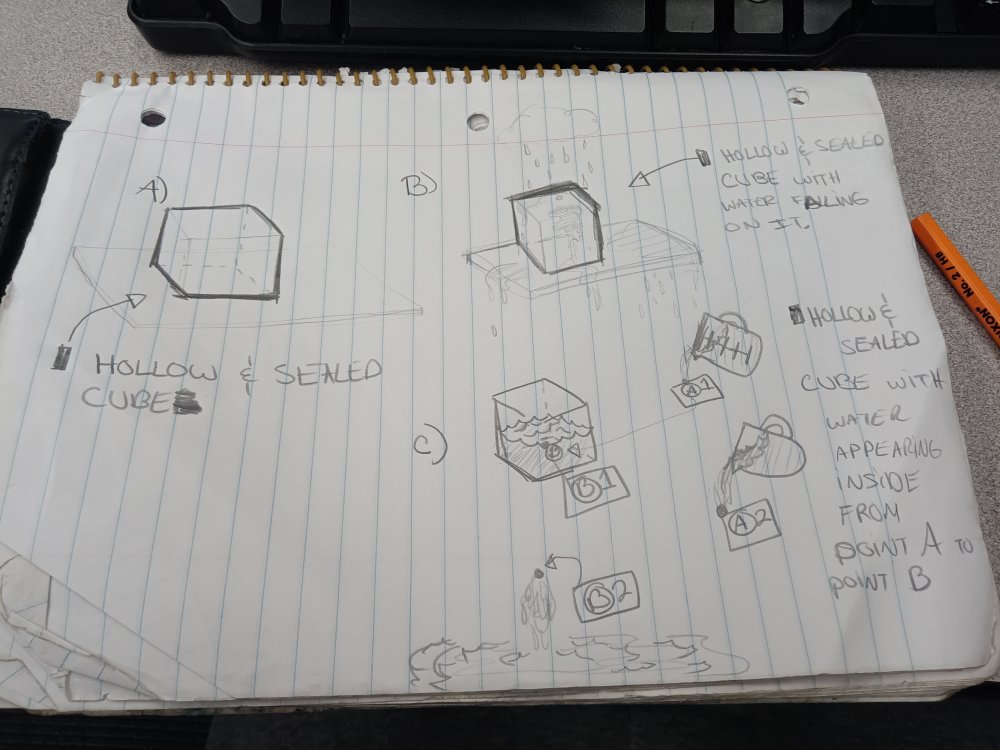 A)
HOLLOW & SEALED
CUBE
B)
HOLLOW & SEALED
CUBE WITH
WATER FALLING
ON IT.
C)
HOLLOW &
SEALED
CUBE WITH
WATER
APPEARING
INSIDE
FROM
POINT A TO
POINT B
A1
B1
A2
B2
No. 2 / HB